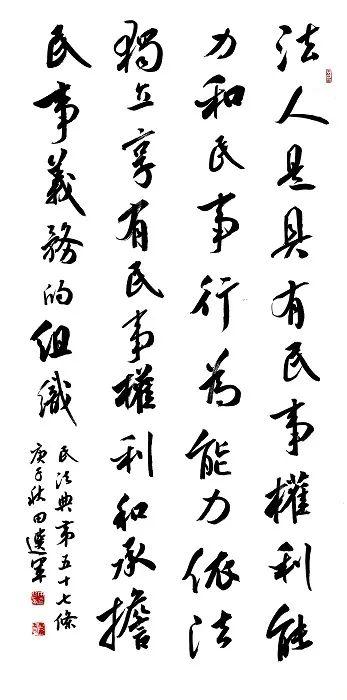 法人是具有民事權利能
力和民事行為能力依法
獨立享有民事權利和承擔
民事義務的组織
民法典第五十七條
庚子秋田運军